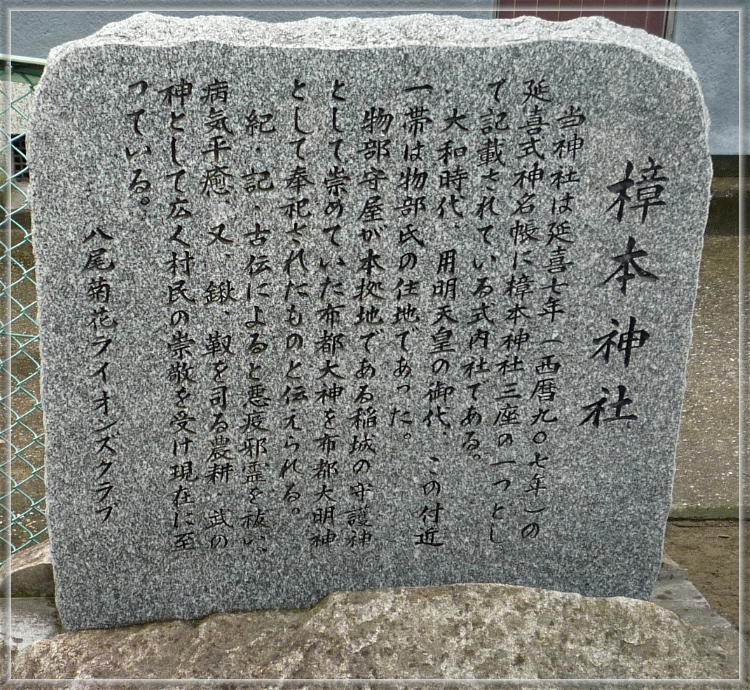 樟本神社
当神社は延喜七年(西暦九〇七年)の
延喜式神名帳に樟本神社三座の一つとし
て記載されている式内社である。
大和時代、用明天皇の御代、この付近
一帯は物部氏の住地であった。
物部守屋が本拠地である稲城の守護神
として崇めていた布都大神を布都大明神
として奉祀されたものと伝えられる。
紀・記・古伝によると悪疫邪霊を祓い、
病気平癒、又、鍬、靱を司る農耕、武の
神として広く村民の崇敬を受け現在に至
っている。
八尾菊花ライオンズクラブ